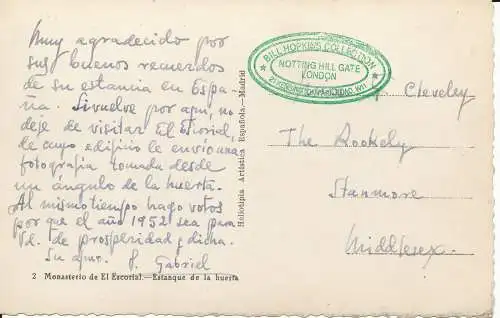 Muy agradecido por
sus buenos recuerdos
de su estancia en Espa-
ña. Si vuelve por aquí, no
deje de visitar El Escorial,
de cuyo edificio le envío una
fotografía tomada desde
un ángulo de la huerta.
Al mismo tiempo hago votos
por que el año 1952 sea para
Vd. de prosperidad y dicha.
Su afmo. P. Gabriel
2 Monasterio de El Escorial.—Estanque de la huerta
Heliotipia Artística Española.—Madrid
BILL HOPKINS COLLECTION
NOTTING HILL GATE
LONDON
W11
Cleveley
The Rookely
Stanmore
Middlesex